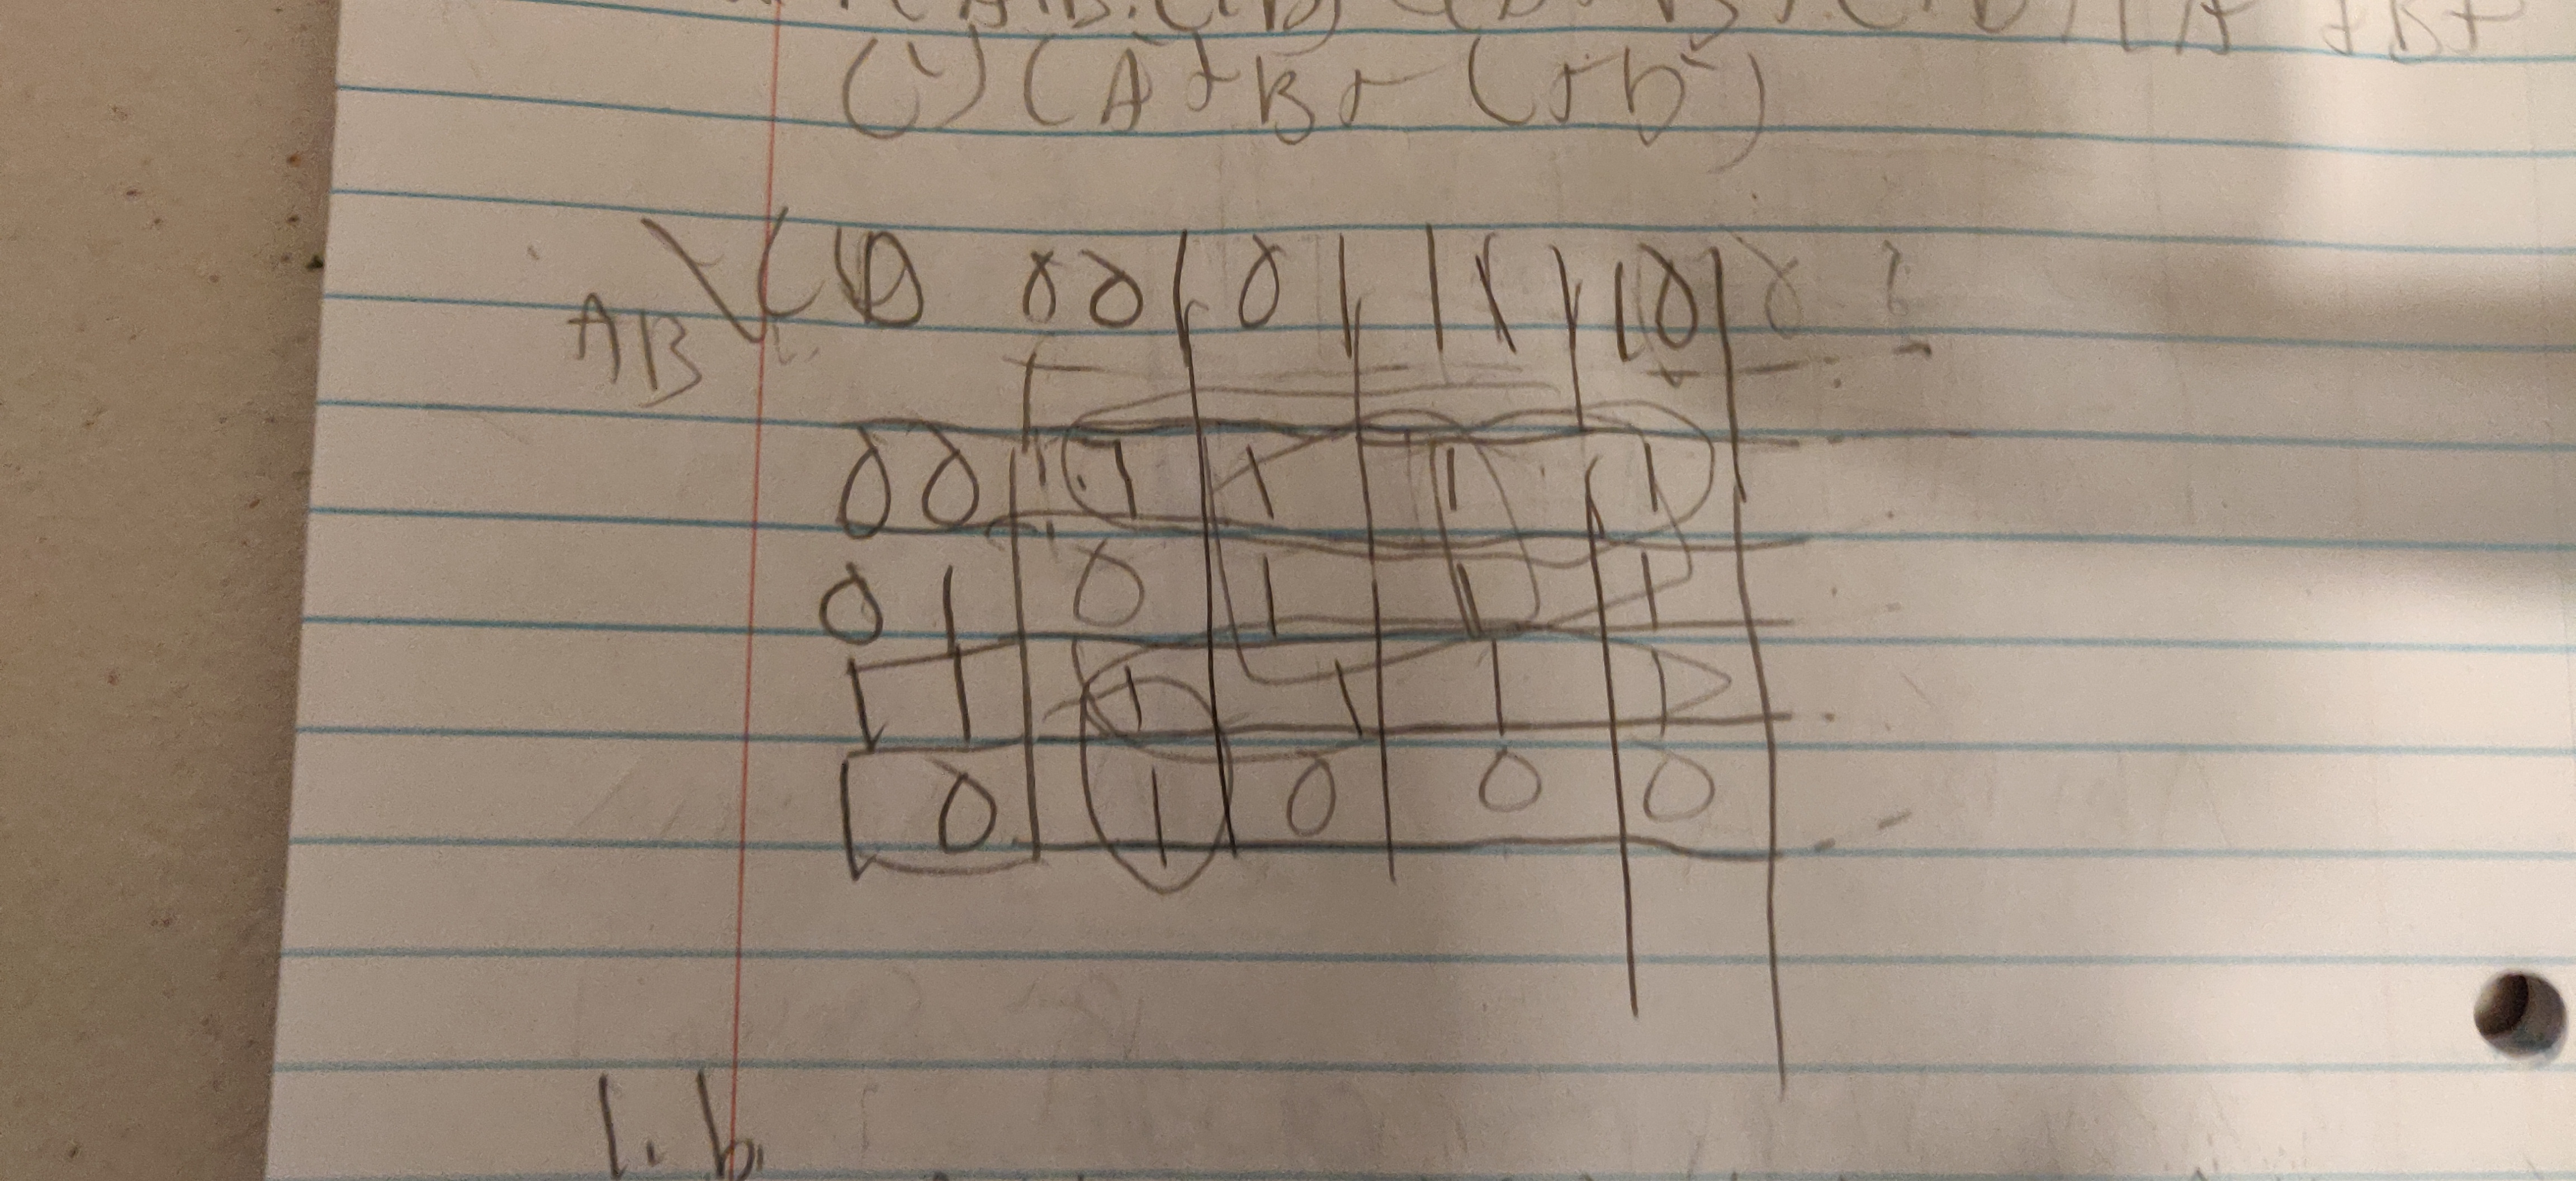 (') (A' + B + C + D')
AB \ CD 00 01 11 10
00 1 1 1 1
01 0 1 1 1
11 1 1 1 1
10 1 0 0 0
1. b.